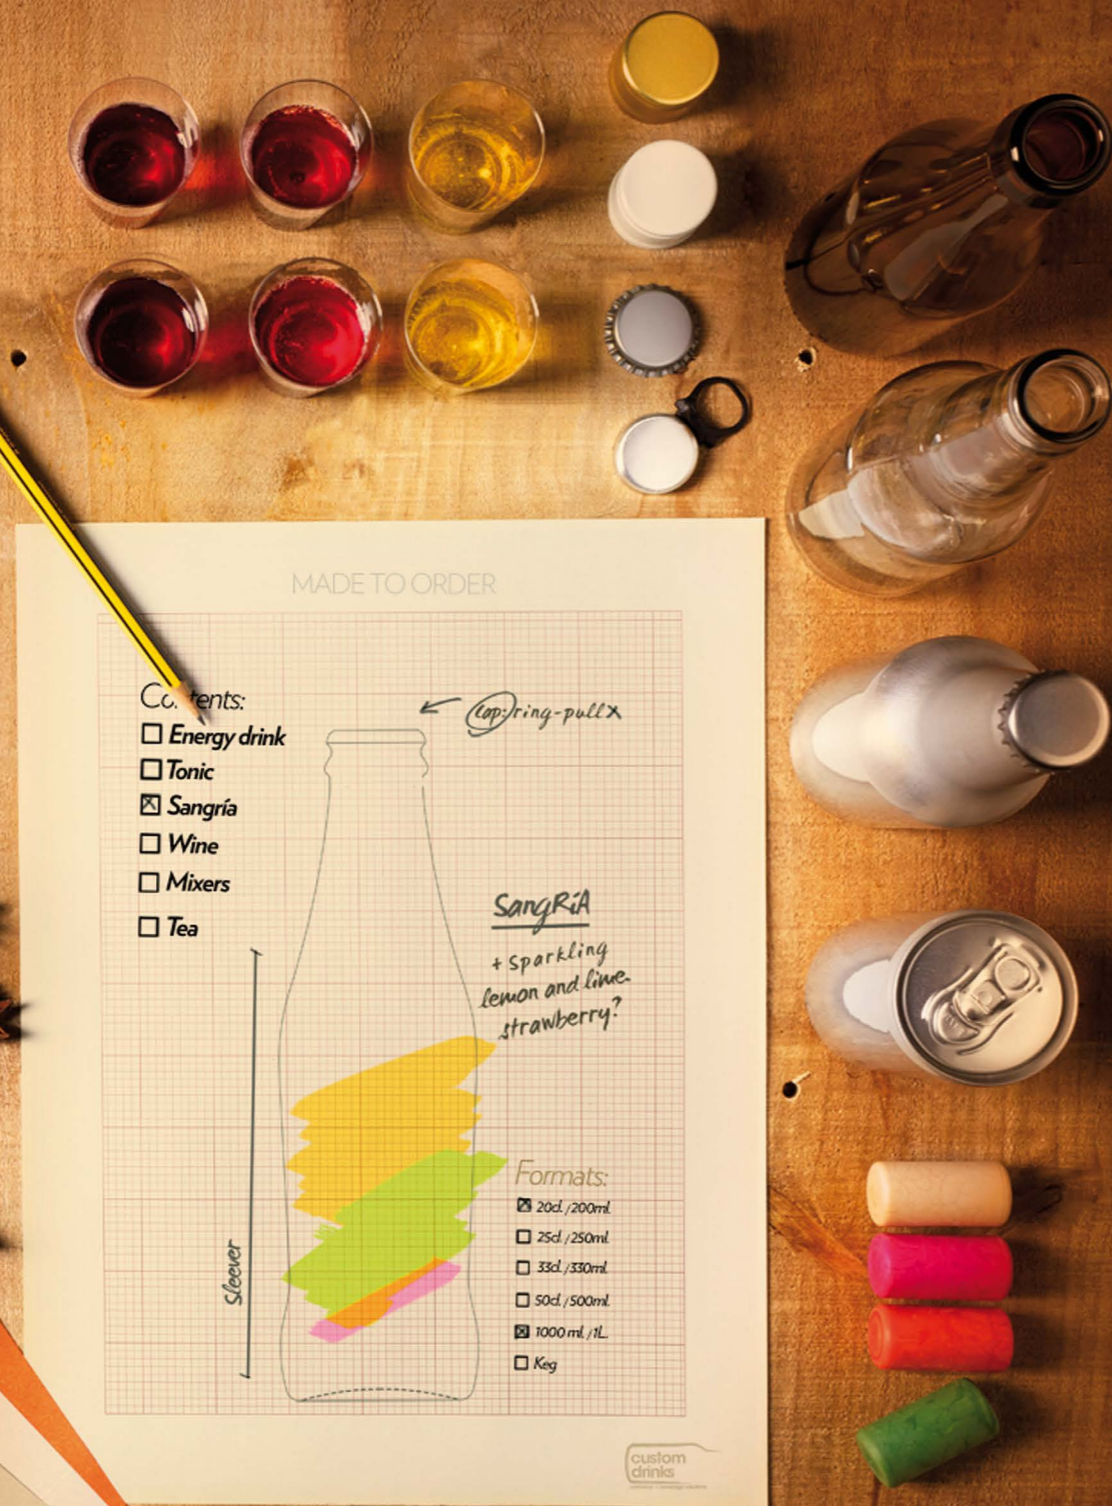 MADE TO ORDER
Contents:
Energy drink
Tonic
Sangría
Wine
Mixers
Tea
top: ring-pull x
SangRíA
+ sparkling
lemon and lime
strawberry?
sleever
Formats:
20cl./200ml.
25cl./250ml.
33cl./330ml.
50cl./500ml.
1000 ml./1L.
Keg
custom
drinks